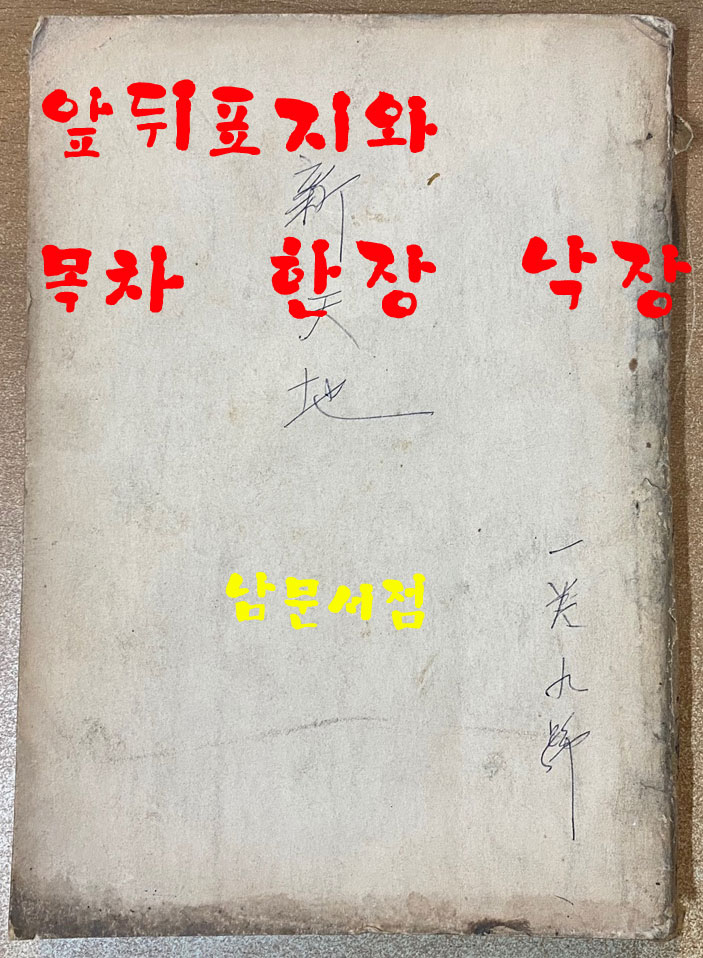 앞뒤표지와
목차 한장 낙장
新天地
남문서점
一卷九號